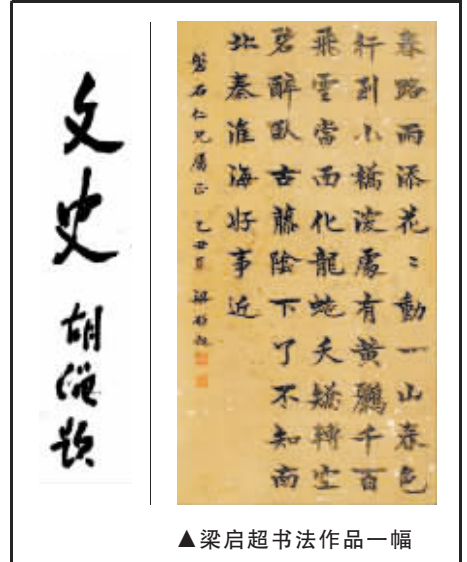 文史
胡绳题
春路雨添花〻動一山春色
行到小橋深處有黃鸝千百
飛雲當面化龍蛇夭矯轉空
碧醉臥古藤陰下了不知南
北秦淮海好事近
磐石仁兄屬正 乙丑夏 梁啟超
▲梁启超书法作品一幅